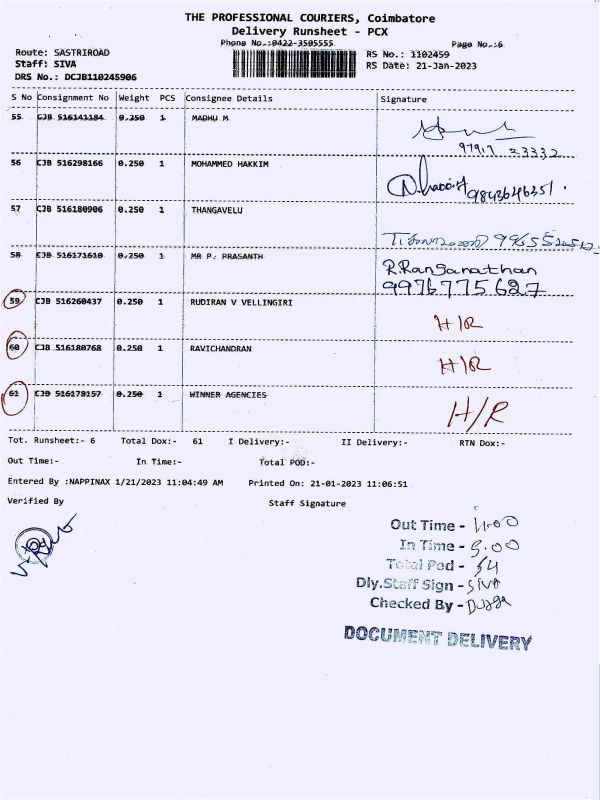 THE PROFESSIONAL COURIERS, Coimbatore
Delivery Runsheet - PCX
Phone No.:0422-3505555 Page No.:6
Route: SASTRIROAD RS No.: 1102459
Staff: SIVA RS Date: 21-Jan-2023
DRS No.: DCJB110245906
S No Consignment No Weight PCS Consignee Details Signature
55 CJB 516141184 0.350 1 MADHU M
97917 23332
56 CJB 516298166 0.250 1 MOHAMMED HAKKIM
9843646351.
57 CJB 516180906 0.250 1 THANGAVELU
58 CJB 516171610 0.250 1 MR P. PRASANTH R.Ranganathan
9976775627
59 CJB 516260437 0.250 1 RUDIRAN V VELLINGIRI
H/R
60 CJB 516180768 0.250 1 RAVICHANDRAN
H/R
61 CJB 516178157 0.250 1 WINNER AGENCIES
H/R
Tot. Runsheet:- 6 Total Dox:- 61 I Delivery:- II Delivery:- RTN Dox:-
Out Time:- In Time:- Total POD:-
Entered By :NAPPINAX 1/21/2023 11:04:49 AM Printed On: 21-01-2023 11:06:51
Verified By Staff Signature
Out Time - 11.00
In Time - 5.00
Total Pod - 54
Dly.Staff Sign - Siva
Checked By -
DOCUMENT DELIVERY